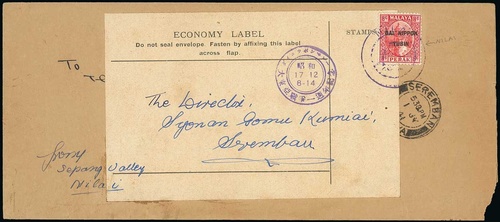 ECONOMY LABEL
Do not seal envelope. Fasten by affixing this label
across flap.
STAMPS
MALAYA
DAI NIPPON
YUBIN
PERAK
昭和
17 12
8-14
SEREMBAN
To
The Director,
Syonan Gomu Kumiai,
Seremban
from
Sepang Valley
Nilai